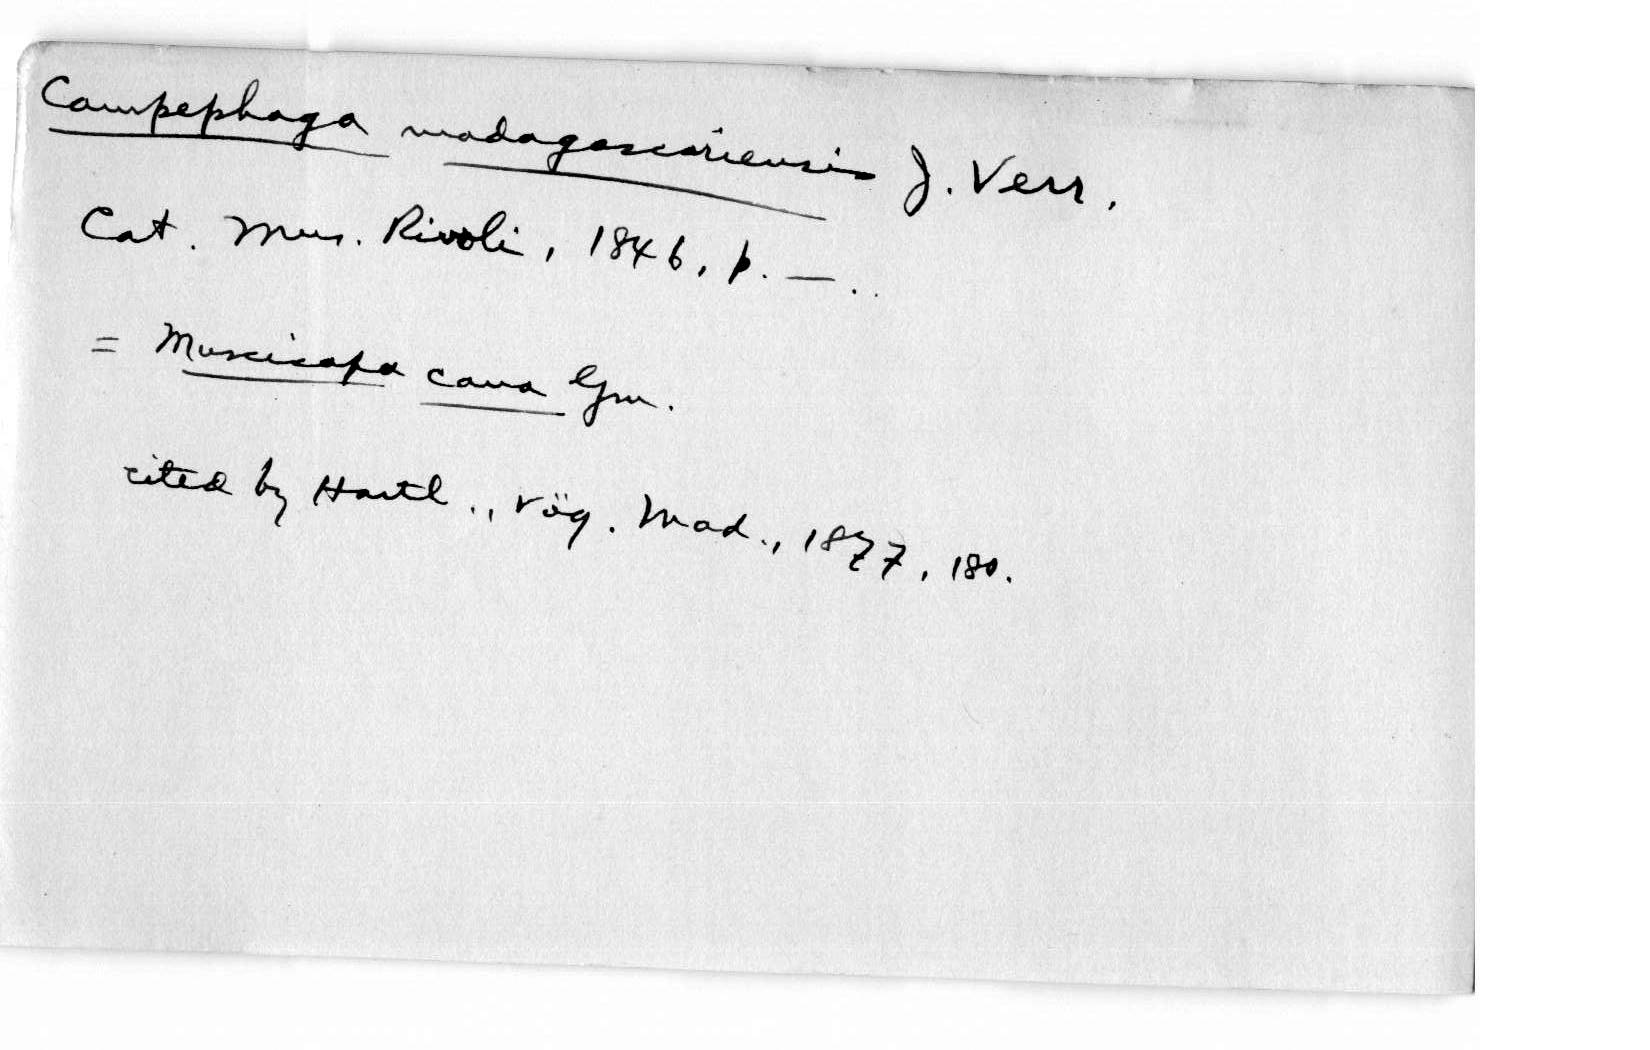 Campephaga madagascariensis J. Verr.
Cat. Mus. Rivoli, 1846, p. —..
= Muscicapa cana Gm.
cited by Hartl., Vög. Mad., 1877, 180.